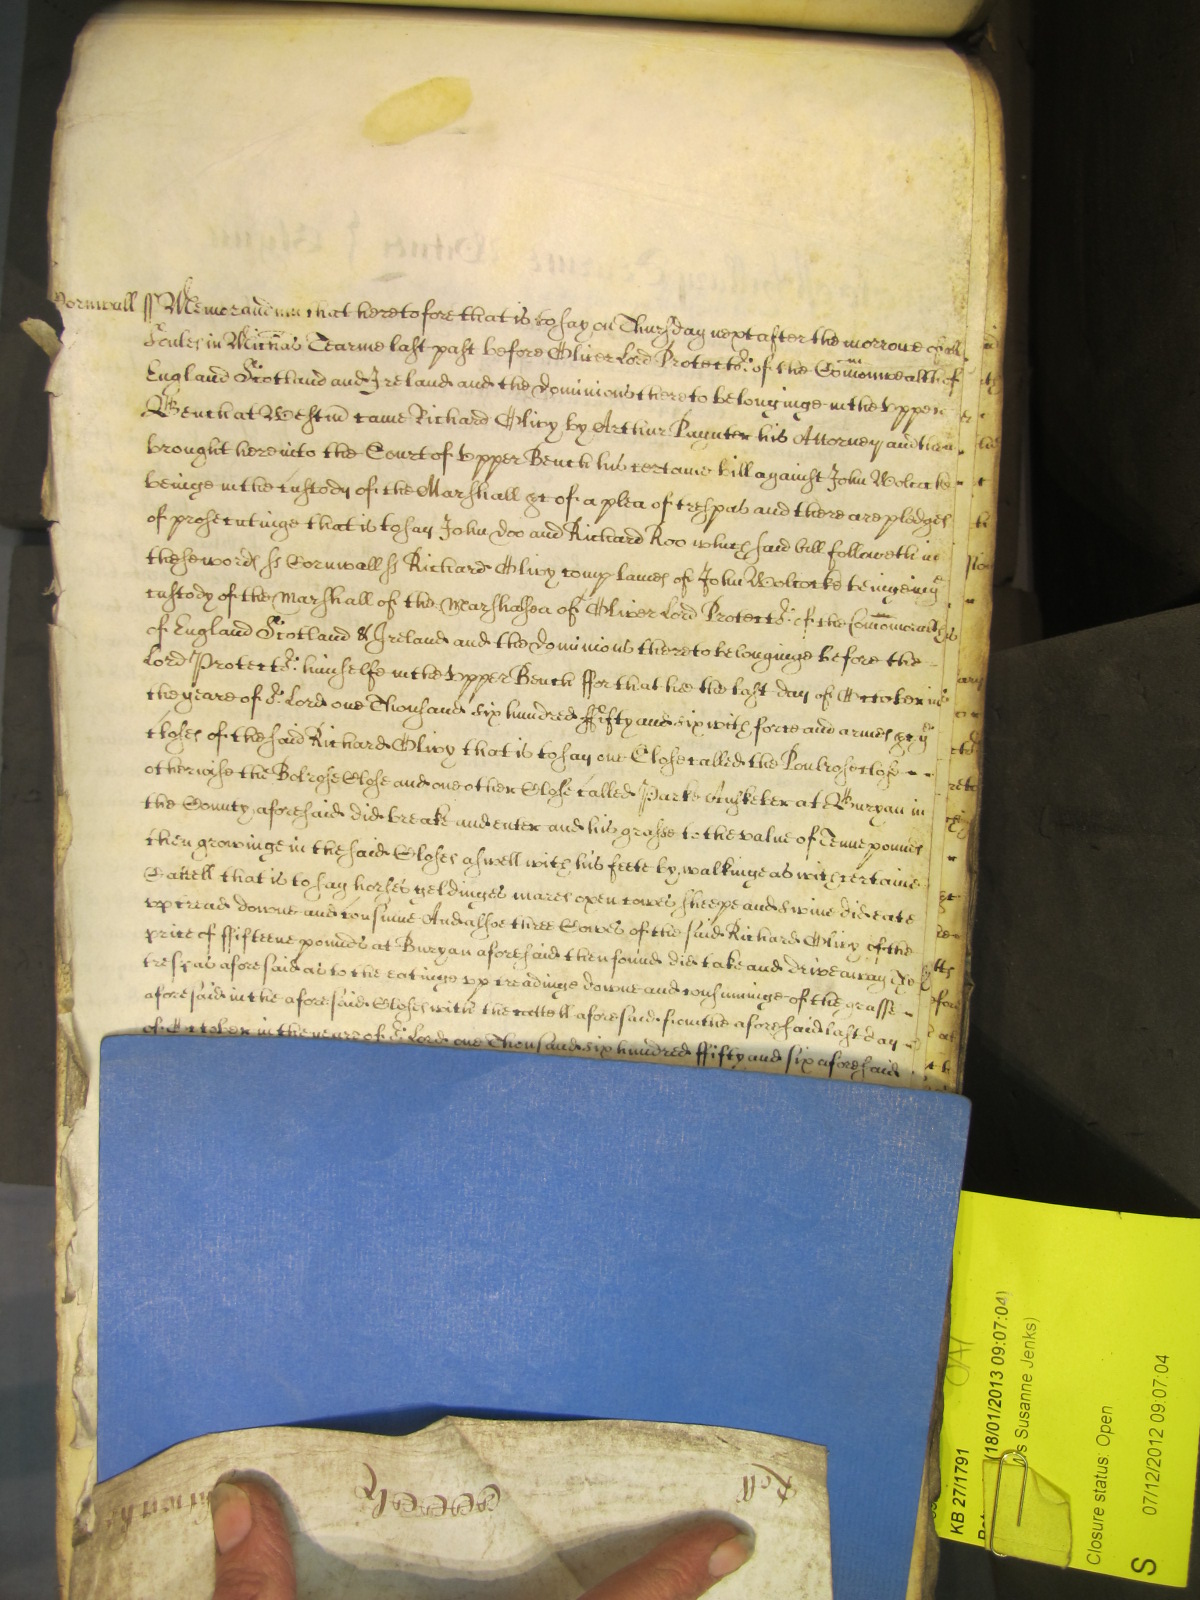 Cornwall ss Memorandum that heretofore that is to say on Thursday next after the morrowe of all
Soules in Michas Tearme last past before Oliver Lord Protector of the Comonwealth of
England Scotland and Ireland and the dominions thereto belonginge in the Upper
Bench at Westm came Richard Olivy by Arthur Paynter his Attorney and then
brought here into the Court of Upper Bench his certaine bill against John Wolcocke
beinge in the custody of the Marshall &c of a plea of trespas and there are pledges
of prosecutinge that is to say John Doo and Richard Roo which said bill followeth in
these words ss Cornwall ss Richard Olivy complaines of John Wolcocke beinge in ye
custody of the Marshall of the Marshalsea of Oliver Lord Protector of the Comonwealth
of England Scotland & Ireland and the dominions thereto belonginge before the
Lord Protector himselfe in the Upper Bench ffor that he the last day of October in
the yeare of or Lord one Thousand six hundred ffifty and six with force and armes &c ye
closes of the said Richard Olivy that is to say one Close called the Ponbrose close
otherwise the Bolrose Close and one other Close called Parke Anskeber at Buryan in
the County aforesaid did breake and enter and his grasse to the value of Tenne pounds
then growinge in the said Closes aswell with his feete by walkinge as with certaine
Cattell that is to say horses geldinges mares oxen cowes sheepe and swine did eate
upp tread downe and consume And alsoe three Cowes of the said Richard Olivy of the
price of ffifteene pounds at Buryan aforesaid then found did take and drive away The
trespas aforesaid as to the eatinge upp treadinge downe and consuminge of the grasse
aforesaid in the aforesaid Closes with the cattell aforesaid from the aforesaid last day
of October in the yeare of or Lord one Thousand six hundred ffifty and six aforesaid
Roll
KB 27/1791
(18/01/2013 09:07:04)
Susanne Jenks)
Closure status: Open
S 07/12/2012 09:07:04